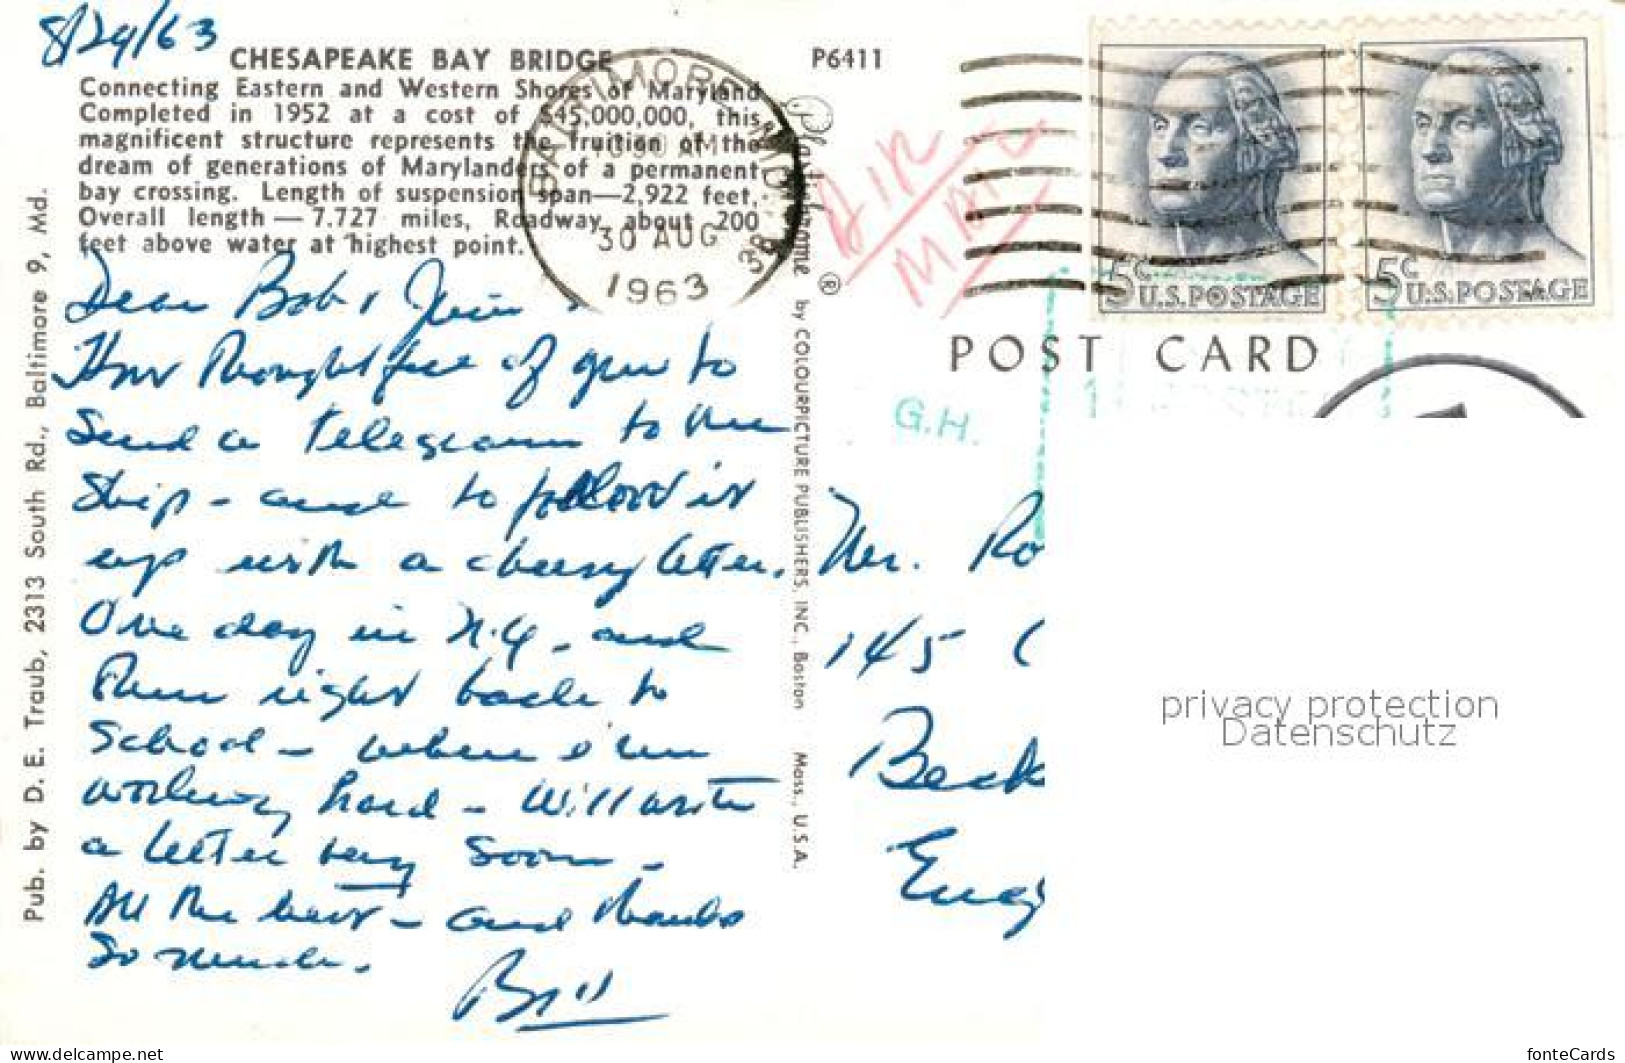 8/29/63
CHESAPEAKE BAY BRIDGE
Connecting Eastern and Western Shores of Maryland
Completed in 1952 at a cost of $45,000,000, this
magnificent structure represents the fruition of the
dream of generations of Marylanders of a permanent
bay crossing. Length of suspension span—2,922 feet,
Overall length — 7.727 miles, Roadway about 200
feet above water at highest point.
P6411
BALTIMORE
AM
30 AUG
1963
AIR
MAIL
5c U.S.POSTAGE
5c U.S.POSTAGE
POST CARD
G.H.
Dear Bob &
How thoughtful of you to
send a telegram to the
ship - and to follow it
up with a cheery letter.
One day in N.Y. and
then right back to
school - where I'm
working hard - Will write
a letter very soon -
All the best - and thanks
so much.
Bill
Mr. Ro
145 C
Beck
Eng
Pub. by D. E. Traub, 2313 South Rd., Baltimore 9, Md.
Plastichrome ® by COLOURPICTURE PUBLISHERS, INC., Boston Mass., U.S.A.
privacy protection
Datenschutz
www.delcampe.net
fonteCards